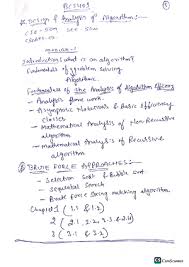 BCS401
Design & Analysis of Algorithms:-
CIE:- 50M SEE:- 50M
Module-1
Introduction: what is an algorithm?
Fundamentals of problem solving
Algorithm.
Fundamentals of the Analysis of Algorithm Efficiency
- Analysis frame work
- Asymptotic Notations & Basic Efficiency
classes
- Mathematical Analysis of Non Recursive
algorithm
- Mathematical Analysis of Recursive
algorithm
BRUTE FORCE APPROACHES:-
- Selection Sort & Bubble sort
- Sequential Search
- Brute Force String matching algorithm
Chapter 1 (1.1 & 1.2)
2 (2.1, 2.2, 2.3 & 2.4)
3 (3.1 & 3.2)
CamScanner